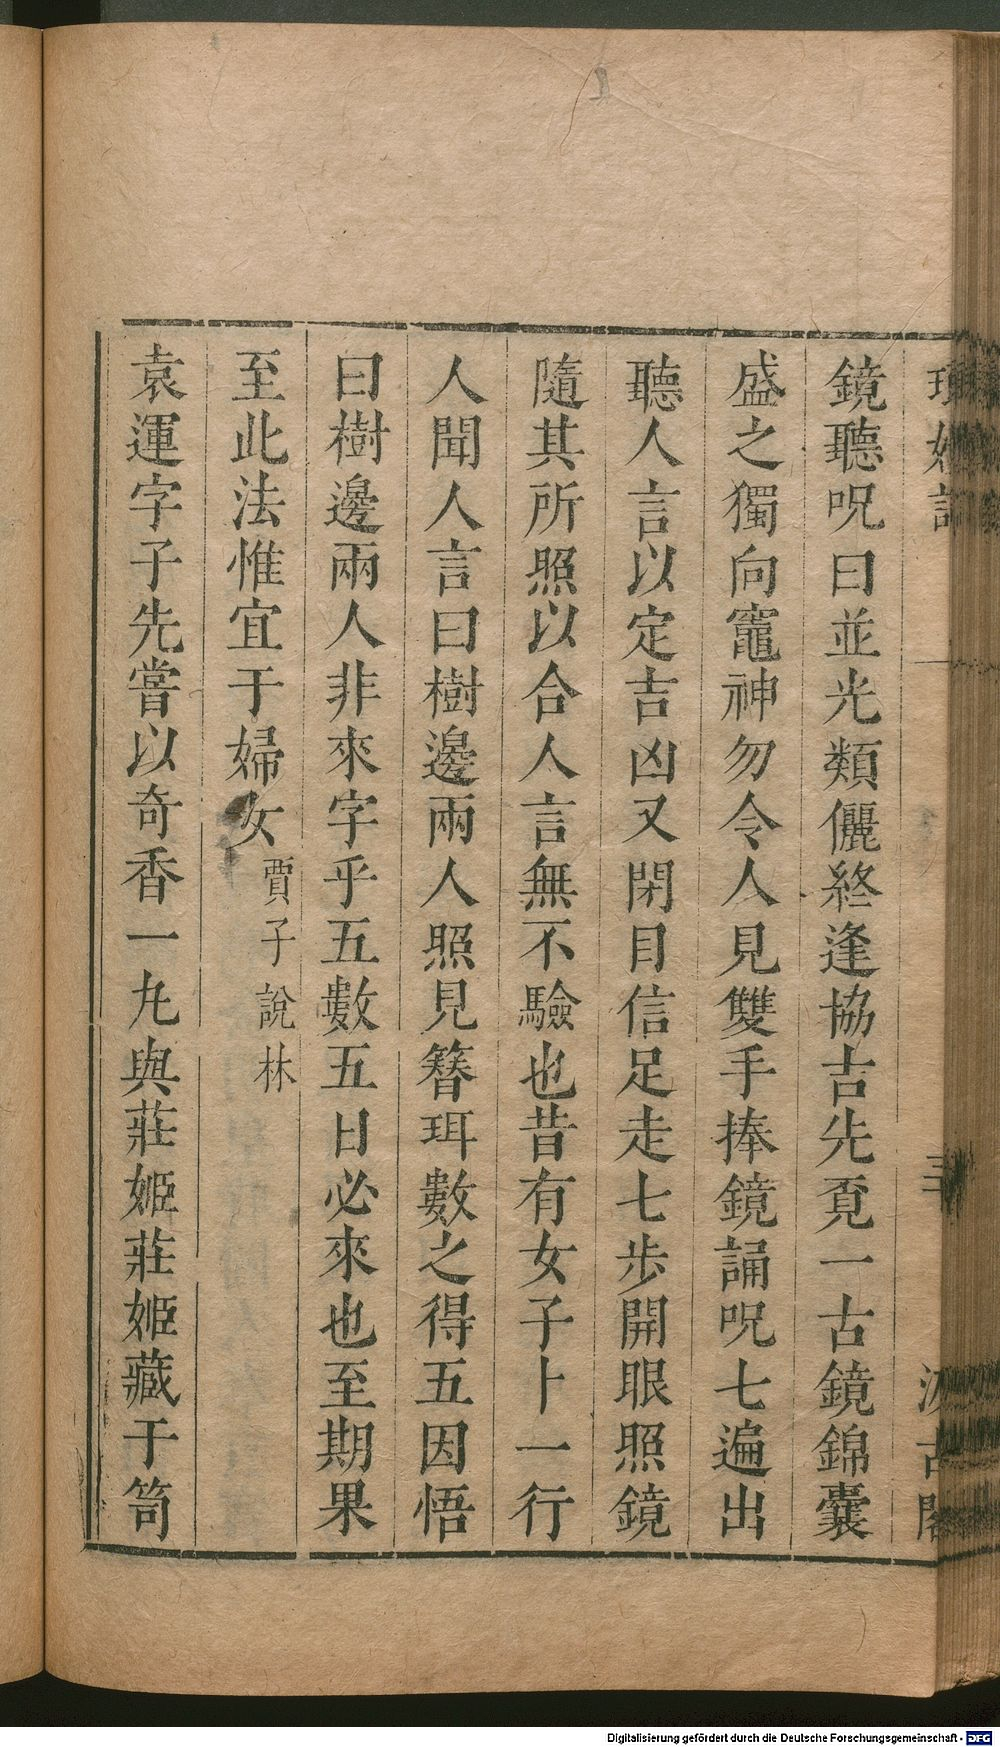 鏡聽呪曰並光類儷終逢協吉先覔一古鏡錦囊
盛之獨向竈神勿令人見雙手捧鏡誦呪七遍出
聽人言以定吉凶又閉目信足走七步開眼照鏡
隨其所照以合人言無不驗也昔有女子卜一行
人聞人言曰樹邊兩人照見簪珥數之得五因悟
曰樹邊兩人非來字乎五數五日必來也至期果
至此法惟宜于婦女賈子說林
袁運字子先嘗以奇香一丸與莊姬莊姬藏于笥
Digitalisierung gefördert durch die Deutsche Forschungsgemeinschaft - DFG